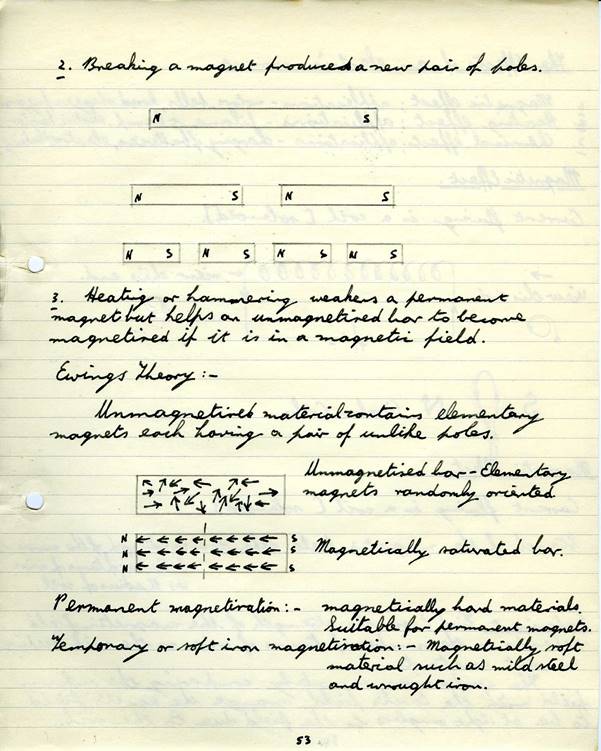 2. Breaking a magnet produces a new pair of poles.
N S
N S N S
N S N S N S N S
3. Heating or hammering weakens a permanent
magnet but helps an unmagnetised bar to become
magnetised if it is in a magnetic field.
Ewings Theory:-
Unmagnetised material contains elementary
magnets each having a pair of unlike poles.
Unmagnetised bar - Elementary
magnets randomly oriented
N S
N S
N S
Magnetically saturated bar.
Permanent magnetisation:- magnetically hard materials.
Suitable for permanent magnets.
Temporary or soft iron magnetisation:- Magnetically soft
material such as mild steel
and wrought iron.
53